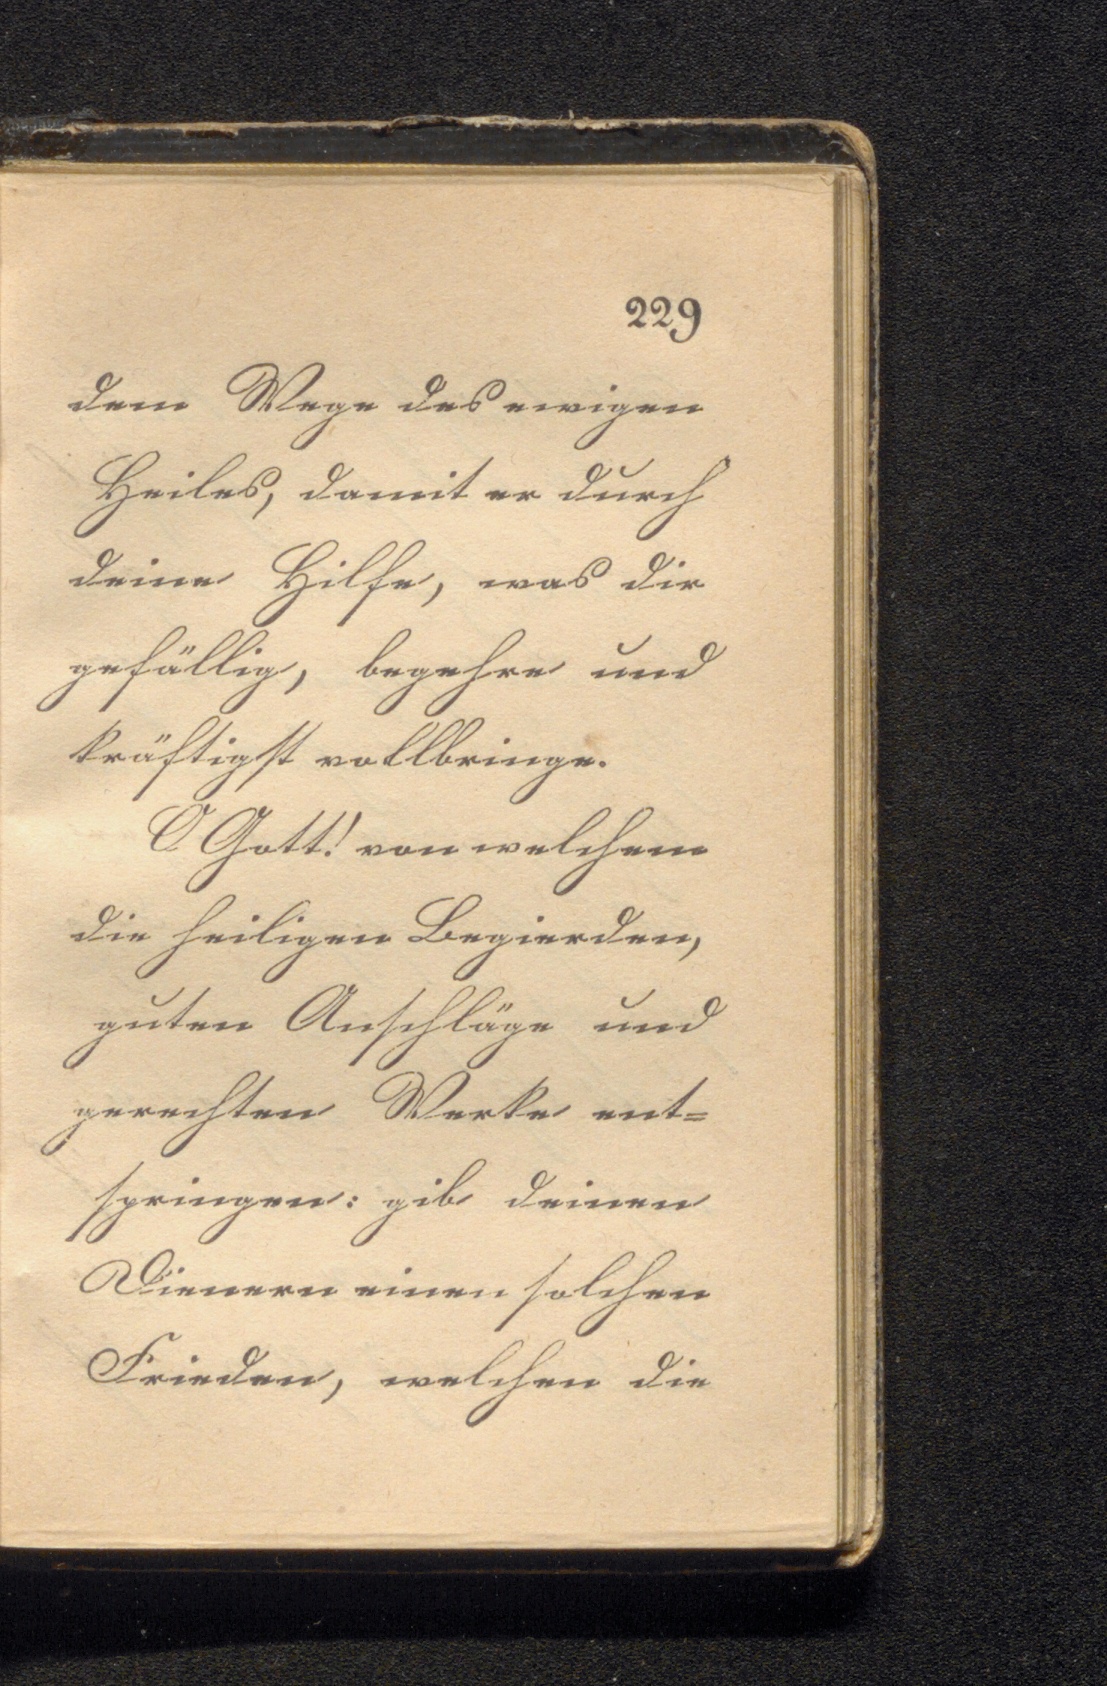 229
dem Wege des ewigen
Heiles, damit er durch
deine Hilfe, was dir
gefällig, begehre und
kräftigst vollbringe.
O Gott! von welchem
die heiligen Begierden,
guten Anschläge und
gerechten Werke ent=
springen: gib deinen
Dienern einen solchen
Frieden, welchen die